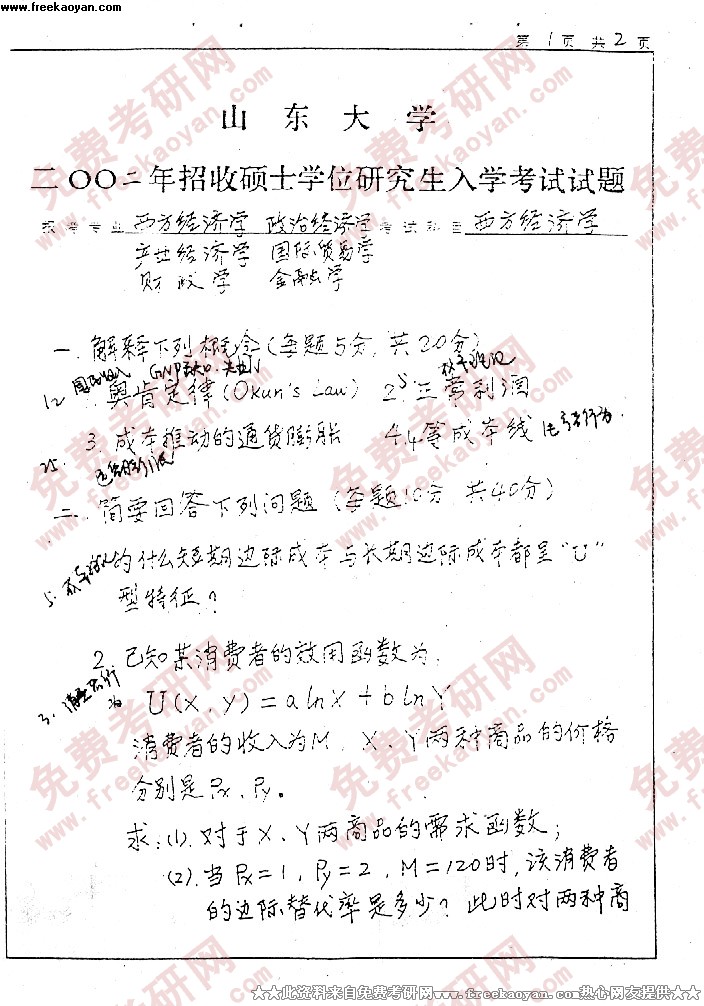 www.freekaoyan.com
第 1 页 共 2 页
山 东 大 学
二〇〇二年招收硕士学位研究生入学考试试题
报考专业 西方经济学 政治经济学 考试科目 西方经济学
产业经济学 国际贸易学
财政学 金融学
一. 解释下列概念(每题5分, 共20分)
1. 奥肯定律(Okun's Law) 2. 正常利润
3. 成本推动的通货膨胀 4. 等成本线
二. 简要回答下列问题 (每题10分 共40分)
为什么短期边际成本与长期边际成本都呈"U"
型特征?
2. 已知某消费者的效用函数为:
U(X, Y) = a ln X + b ln Y
消费者的收入为M, X、Y两种商品的价格
分别是Px、Py。
求: (1). 对于X、Y两商品的需求函数;
(2). 当Px=1, Py=2, M=120时, 该消费者
的边际替代率是多少? 此时对两种商
免费考研网
www.freekaoyan.com
★★此资料来自免费考研网www.freekaoyan.com热心网友提供★★